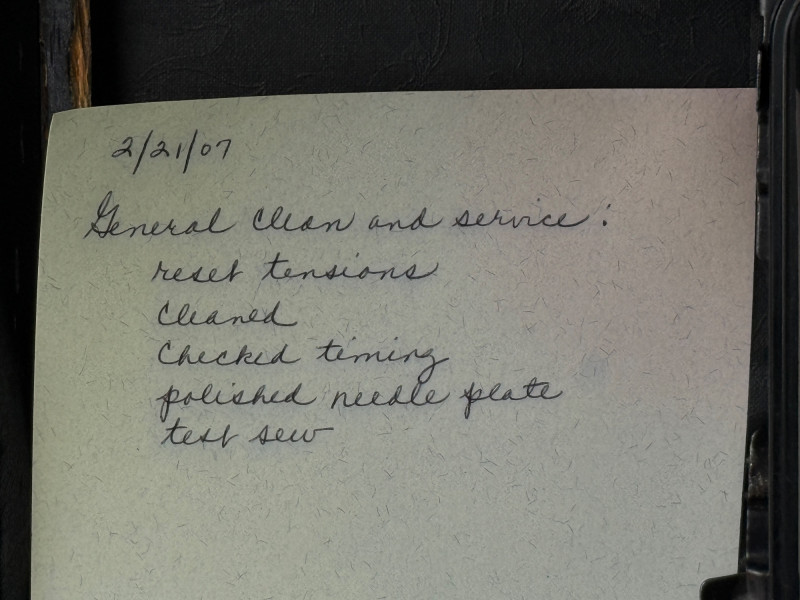 2/21/07
General clean and service:
reset tensions
cleaned
checked timing
polished needle plate
test sew